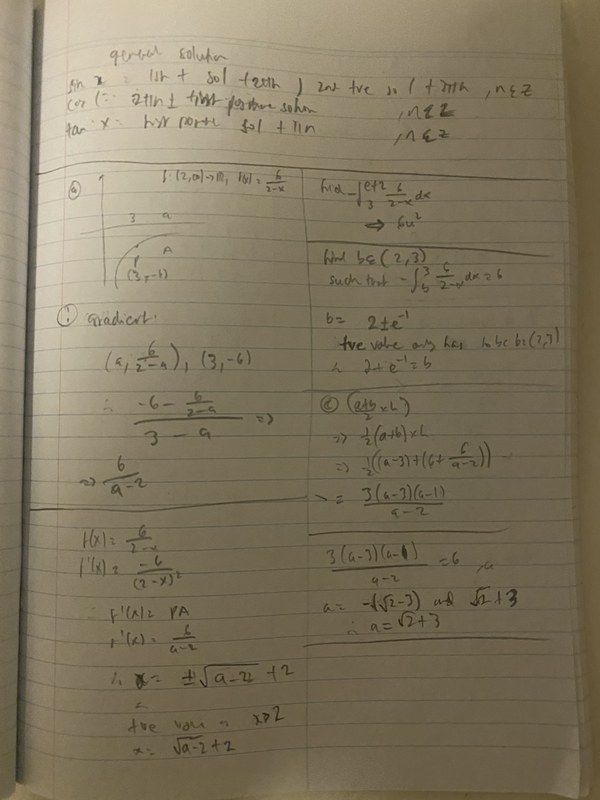 general solution
sin x = 1st + sol + 2πn , 2nd +ve sol + 2πn , n ∈ Z
2πn ± first positive solution , n ∈ Z
tan x = first positive sol + πn , n ∈ Z
f: (2,∞) → R, f(x) = 6/(2-x)
3 a
A
P
(3,-6)
① Gradient:
(a, 6/(2-a)), (3,-6)
∴ (-6 - 6/(2-a))/(3-a) ⇒
⇒ 6/(a-2)
f(x) = 6/(2-x)
f'(x) = -6/(2-x)²
f'(x) = PA
f'(x) = 6/(a-2)
∴ x = ±√(a-2) + 2
+ve x>2
x = √(a-2) + 2
find -∫₃^(e+2) 6/(2-x) dx
⇒ 6u²
find b ∈ (2,3)
such that -∫_b^3 6/(2-x) dx = 6
b = 2±e⁻¹
+ve value only b∈(2,3)
∴ 2+e⁻¹ = b
((a+b)/2 × L)
⇒ 1/2 (a+b) × L
⇒ 1/2((a-3)+(6+6/(a-2)))
= 3(a-3)(a-1)/(a-2)
3(a-3)(a-1)/(a-2) = 6
a = -(√2-3) and √2+3
∴ a = √2+3